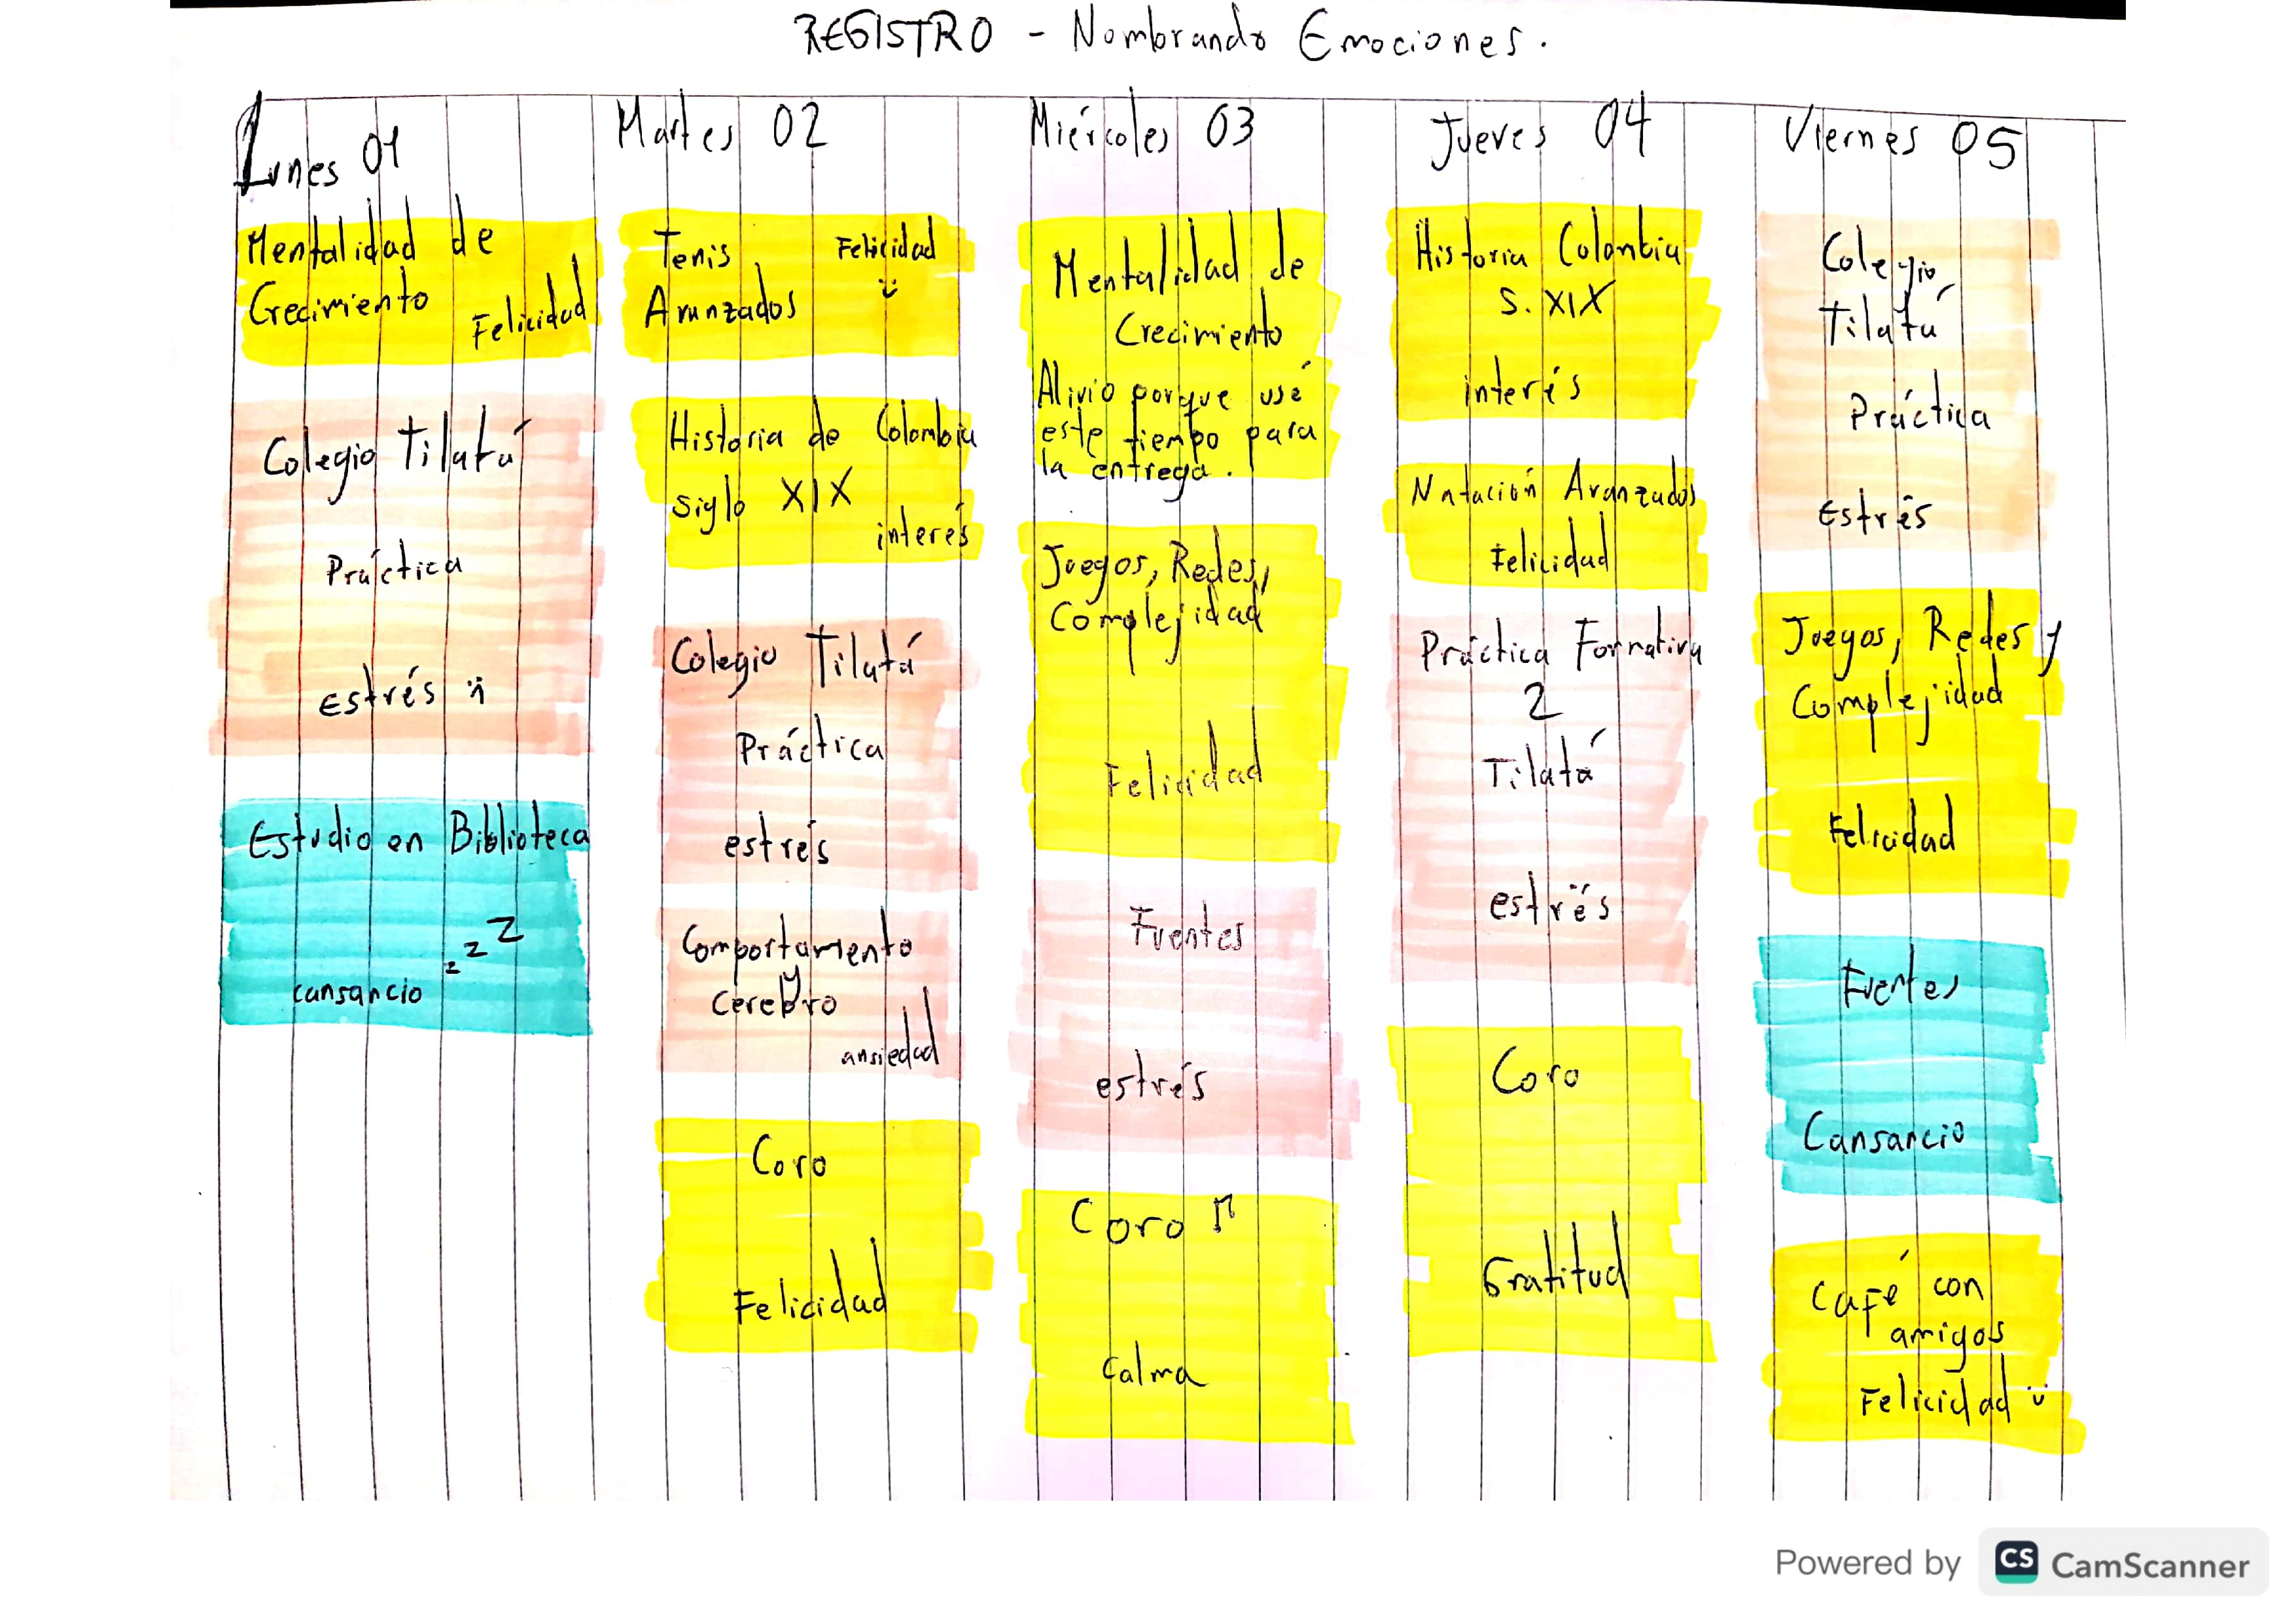 REGISTRO - Nombrando Emociones.
Lunes 01
Mentalidad de
Crecimiento
Felicidad
Colegio Tilatá
Práctica
Estrés
Estudio en Biblioteca
z z Z
cansancio
Martes 02
Tenis Felicidad
Avanzados
Historia de Colombia
siglo XIX
interés
Colegio Tilatá
Práctica
estrés
Comportamiento
y
Cerebro
ansiedad
Coro
Felicidad
Miércoles 03
Mentalidad de
Crecimiento
Alivio porque usé
este tiempo para
la entrega.
Juegos, Redes,
Complejidad
Felicidad
Fuentes
estrés
Coro
Calma
Jueves 04
Historia Colombia
S. XIX
interés
Natación Avanzados
Felicidad
Práctica Formativa
2
Tilatá
estrés
Coro
Gratitud
Viernes 05
Colegio
Tilatá
Práctica
Estrés
Juegos, Redes y
Complejidad
Felicidad
Fuentes
Cansancio
Café con
amigos
Felicidad
Powered by CS CamScanner